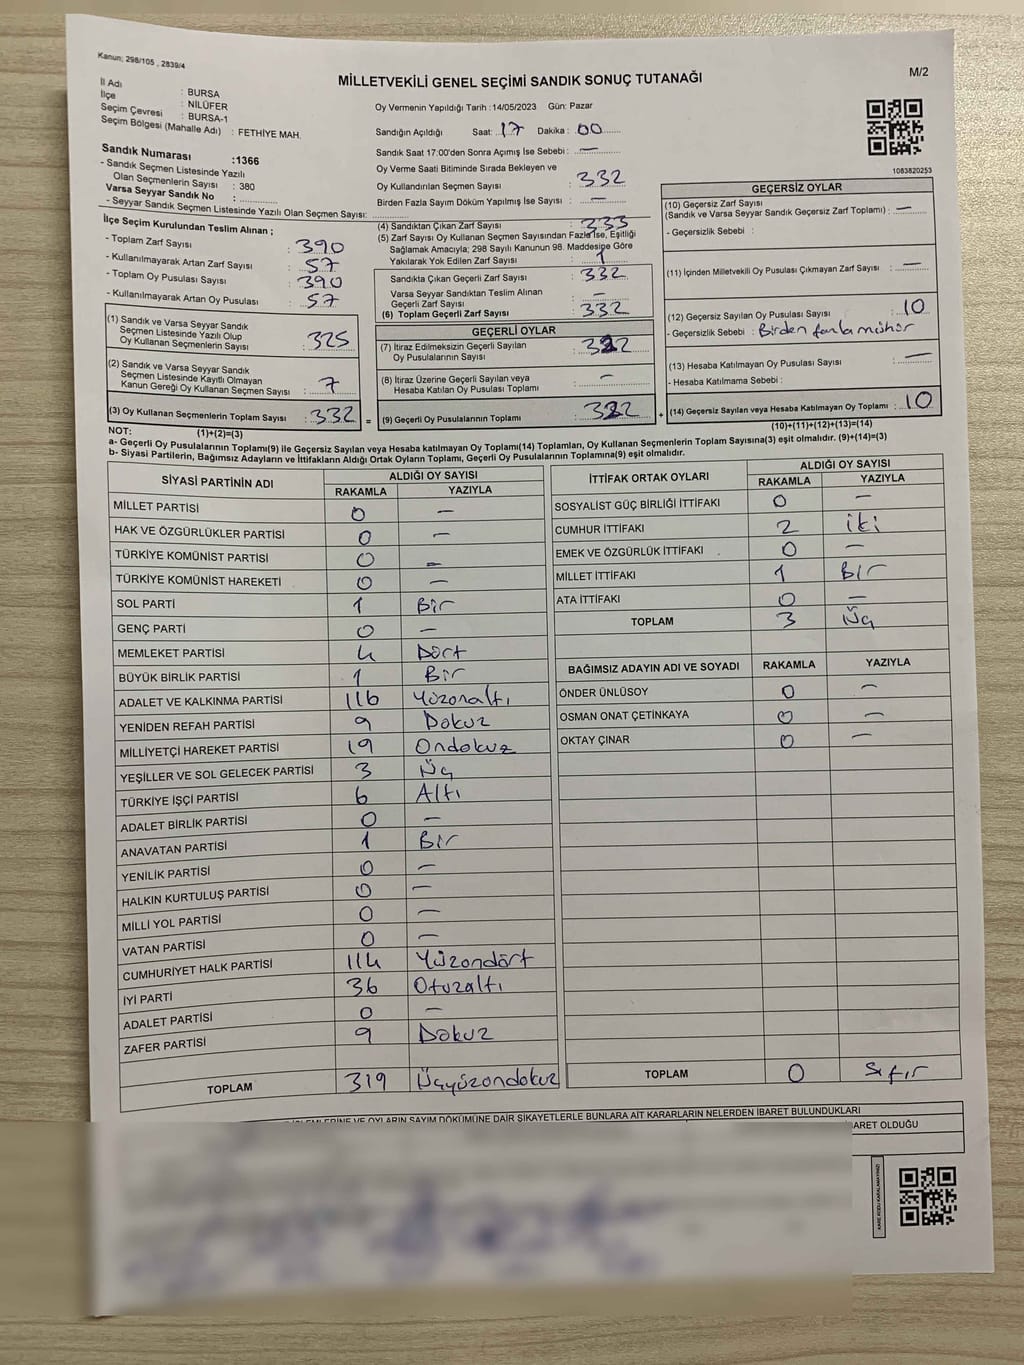 Kanun; 298/105 , 2839/4
MİLLETVEKİLİ GENEL SEÇİMİ SANDIK SONUÇ TUTANAĞI
M/2
İl Adı : BURSA
İlçe : NİLÜFER
Seçim Çevresi : BURSA-1
Seçim Bölgesi (Mahalle Adı) : FETHİYE MAH.
Sandık Numarası :1366
- Sandık Seçmen Listesinde Yazılı
Olan Seçmenlerin Sayısı : 380
Varsa Seyyar Sandık No :
- Seyyar Sandık Seçmen Listesinde Yazılı Olan Seçmen Sayısı:
Oy Vermenin Yapıldığı Tarih :14/05/2023 Gün: Pazar
Sandığın Açıldığı Saat: 17 Dakika : 00
Sandık Saat 17:00'den Sonra Açımış İse Sebebi : —
Oy Verme Saati Bitiminde Sırada Bekleyen ve
Oy Kullandırılan Seçmen Sayısı : 332
Birden Fazla Sayım Döküm Yapılmış İse Sayısı : —
1083820253
İlçe Seçim Kurulundan Teslim Alınan ;
- Toplam Zarf Sayısı : 390
- Kullanılmayarak Artan Zarf Sayısı : 57
- Toplam Oy Pusulası Sayısı : 390
- Kullanılmayarak Artan Oy Pusulası : 57
(1) Sandık ve Varsa Seyyar Sandık
Seçmen Listesinde Yazılı Olup
Oy Kullanan Seçmenlerin Sayısı : 325
(2) Sandık ve Varsa Seyyar Sandık
Seçmen Listesinde Kayıtlı Olmayan
Kanun Gereği Oy Kullanan Seçmen Sayısı : 7
(3) Oy Kullanan Seçmenlerin Toplam Sayısı : 332 =
(1)+(2)=(3)
(4) Sandıktan Çıkan Zarf Sayısı : 333
(5) Zarf Sayısı Oy Kullanan Seçmen Sayısından Fazla İse, Eşitliği
Sağlamak Amacıyla; 298 Sayılı Kanunun 98. Maddesine Göre
Yakılarak Yok Edilen Zarf Sayısı : 1
Sandıkta Çıkan Geçerli Zarf Sayısı : 332
Varsa Seyyar Sandıktan Teslim Alınan
Geçerli Zarf Sayısı : —
(6) Toplam Geçerli Zarf Sayısı : 332
GEÇERLİ OYLAR
(7) İtiraz Edilmeksizin Geçerli Sayılan
Oy Pusulalarının Sayısı : 322
(8) İtiraz Üzerine Geçerli Sayılan veya
Hesaba Katılan Oy Pusulası Toplamı : —
(9) Geçerli Oy Pusulalarının Toplamı : 322 +
GEÇERSİZ OYLAR
(10) Geçersiz Zarf Sayısı
(Sandık ve Varsa Seyyar Sandık Geçersiz Zarf Toplamı) : —
- Geçersizlik Sebebi :
(11) İçinden Milletvekili Oy Pusulası Çıkmayan Zarf Sayısı : —
(12) Geçersiz Sayılan Oy Pusulası Sayısı : 10
- Geçersizlik Sebebi : Birden fazla mühür
(13) Hesaba Katılmayan Oy Pusulası Sayısı : —
- Hesaba Katılmama Sebebi :
(14) Geçersiz Sayılan veya Hesaba Katılmayan Oy Toplamı : 10
(10)+(11)+(12)+(13)=(14)
NOT:
a- Geçerli Oy Pusulalarının Toplamı(9) ile Geçersiz Sayılan veya Hesaba katılmayan Oy Toplamı(14) Toplamları, Oy Kullanan Seçmenlerin Toplam Sayısına(3) eşit olmalıdır. (9)+(14)=(3)
b- Siyasi Partilerin, Bağımsız Adayların ve İttifakların Aldığı Ortak Oyların Toplamı, Geçerli Oy Pusulalarının Toplamına(9) eşit olmalıdır.
SİYASİ PARTİNİN ADI ALDIĞI OY SAYISI
RAKAMLA YAZIYLA
MİLLET PARTİSİ 0 —
HAK VE ÖZGÜRLÜKLER PARTİSİ 0 —
TÜRKİYE KOMÜNİST PARTİSİ 0 —
TÜRKİYE KOMÜNİST HAREKETİ 0 —
SOL PARTİ 1 Bir
GENÇ PARTİ 0 —
MEMLEKET PARTİSİ 4 Dört
BÜYÜK BİRLİK PARTİSİ 1 Bir
ADALET VE KALKINMA PARTİSİ 116 Yüzonaltı
YENİDEN REFAH PARTİSİ 9 Dokuz
MİLLİYETÇİ HAREKET PARTİSİ 19 Ondokuz
YEŞİLLER VE SOL GELECEK PARTİSİ 3 Üç
TÜRKİYE İŞÇİ PARTİSİ 6 Altı
ADALET BİRLİK PARTİSİ 0 —
ANAVATAN PARTİSİ 1 Bir
YENİLİK PARTİSİ 0 —
HALKIN KURTULUŞ PARTİSİ 0 —
MİLLİ YOL PARTİSİ 0 —
VATAN PARTİSİ 0 —
CUMHURİYET HALK PARTİSİ 114 Yüzondört
İYİ PARTİ 36 Otuzaltı
ADALET PARTİSİ 0 —
ZAFER PARTİSİ 9 Dokuz
TOPLAM 319 Üçyüzondokuz
İTTİFAK ORTAK OYLARI ALDIĞI OY SAYISI
RAKAMLA YAZIYLA
SOSYALİST GÜÇ BİRLİĞİ İTTİFAKI 0 —
CUMHUR İTTİFAKI 2 iki
EMEK VE ÖZGÜRLÜK İTTİFAKI 0 —
MİLLET İTTİFAKI 1 Bir
ATA İTTİFAKI 0 —
TOPLAM 3 Üç
BAĞIMSIZ ADAYIN ADI VE SOYADI RAKAMLA YAZIYLA
ÖNDER ÜNLÜSOY 0 —
OSMAN ONAT ÇETİNKAYA 0 —
OKTAY ÇINAR 0 —
TOPLAM 0 Sıfır
İŞLEMLERİNE VE OYLARIN SAYIM DÖKÜMÜNE DAİR ŞİKAYETLERLE BUNLARA AİT KARARLARIN NELERDEN İBARET BULUNDUKLARI
BARET OLDUĞU
KARE KODU KARALAMAYINIZ!